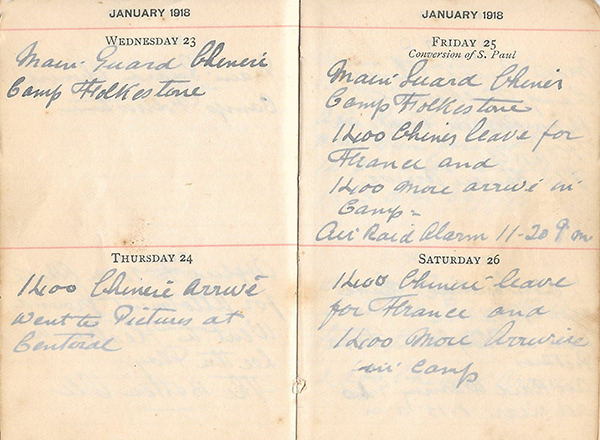 JANUARY 1918
WEDNESDAY 23
Main Guard Chineri
Camp Folkestone
THURSDAY 24
1400 Chineré Arrive
went to Pictures at
Centeral
JANUARY 1918
FRIDAY 25
Conversion of S. Paul
Main Guard Chines
Camp Folkestone
1400 Chines leave for
France and
1400 more arrive in
Camp-
Air Raid Alarm 11-20 P.m
SATURDAY 26
1400 Chineri leave
for France and
1400 More Arrive
in Camp